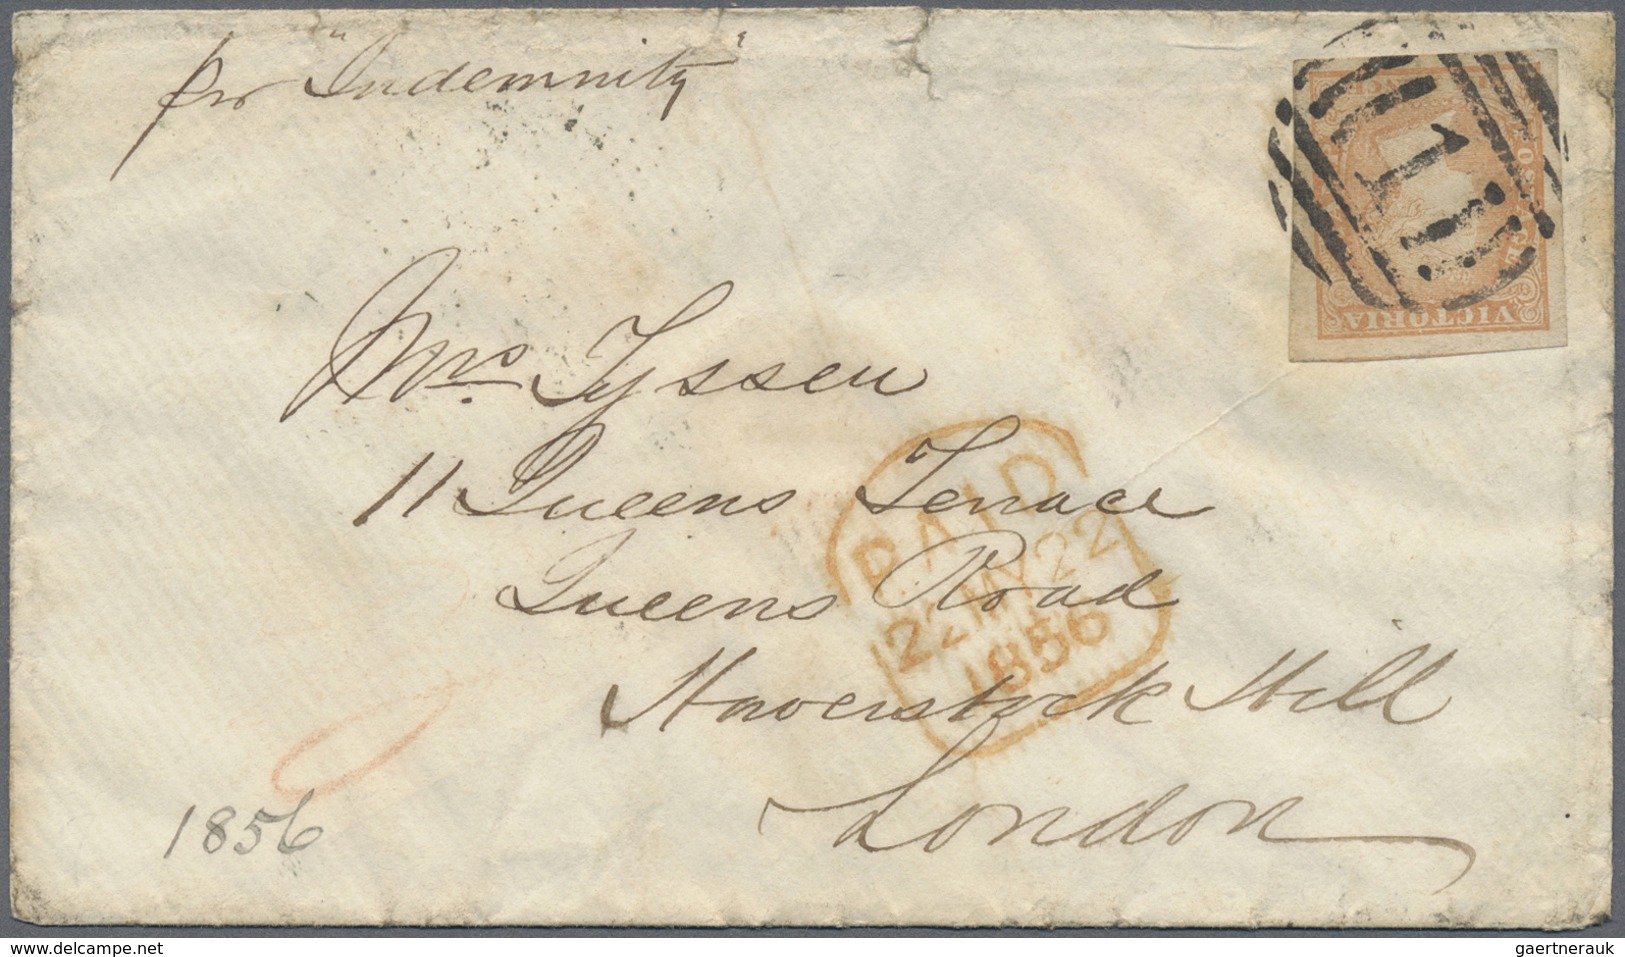 per "Indemnity"
Mrs. Tyssen
11 Queens Terrace
Queens Road
Haverstock Hill
London
PAID
22 MY 22
1856
1
VICTORIA
1856
www.delcampe.net
gaertnerauk